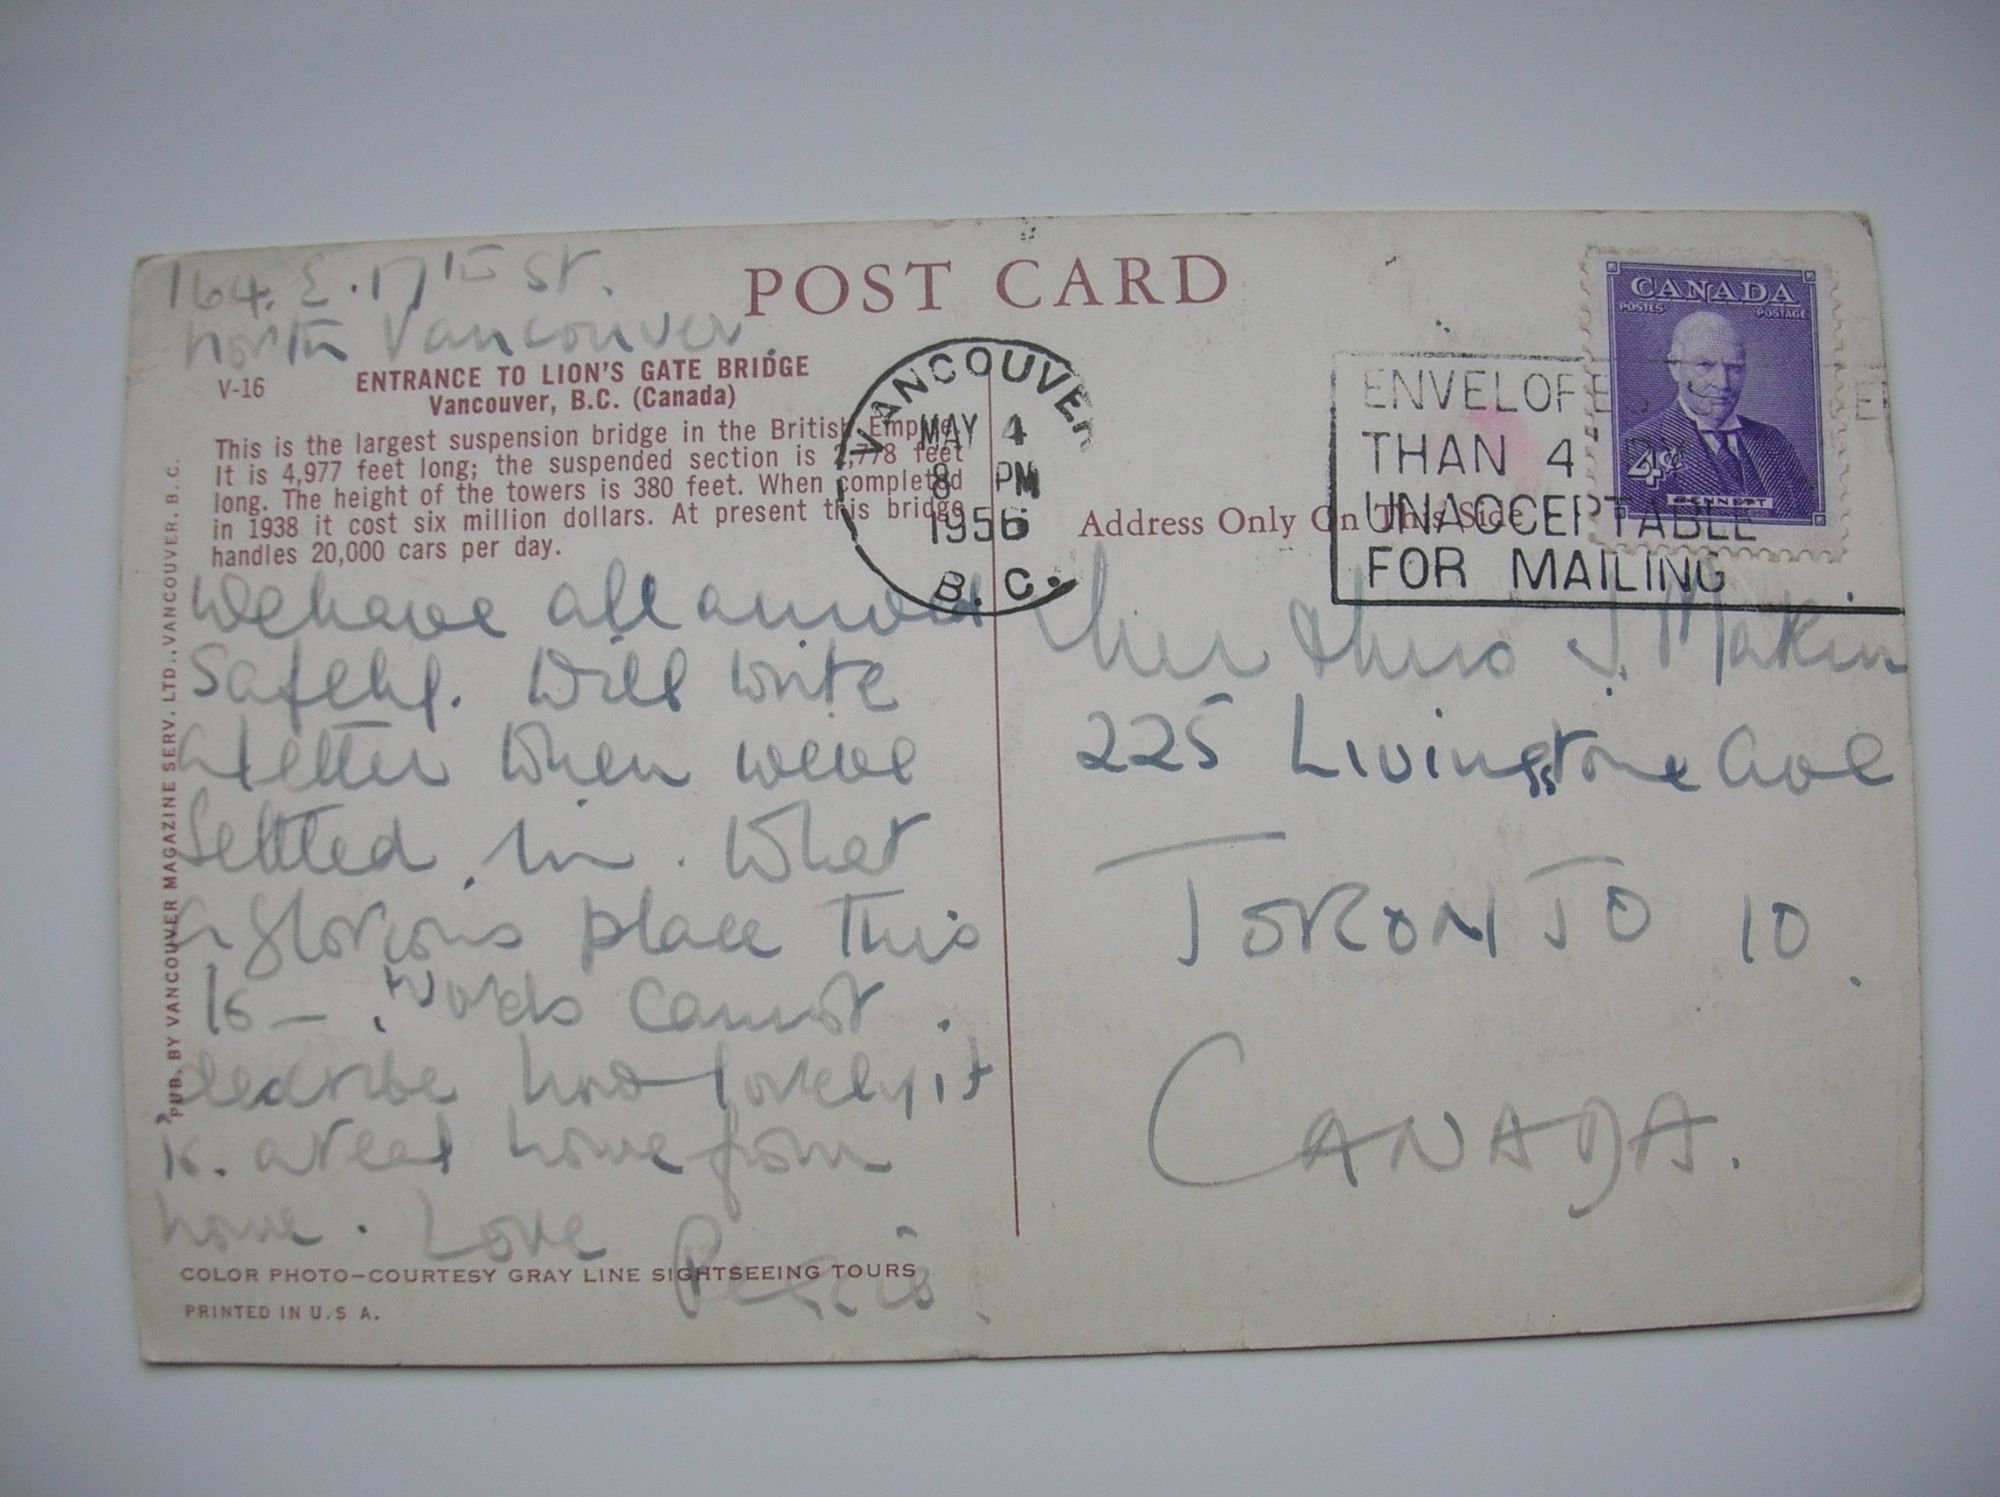 164. E. 17TH ST.
North Vancouver.
POST CARD
V-16
ENTRANCE TO LION'S GATE BRIDGE
Vancouver, B.C. (Canada)
This is the largest suspension bridge in the British Empire.
It is 4,977 feet long; the suspended section is 2,778 feet
long. The height of the towers is 380 feet. When completed
in 1938 it cost six million dollars. At present this bridge
handles 20,000 cars per day.
We have all arrived
Safely. Will write
a letter when weve
Settled in. What
a glorious place This
is — . Words cannot
describe how lovely it
is. a real home from
home. Love
COLOR PHOTO—COURTESY GRAY LINE SIGHTSEEING TOURS
PRINTED IN U.S A.
PUB. BY VANCOUVER MAGAZINE SERV. LTD., VANCOUVER, B. C.
VANCOUVER
MAY 4
8 PM
1956
B. C.
ENVELOPES
THAN 4
UNACCEPTABLE
FOR MAILING
CANADA
POSTES POSTAGE
4¢
BENNETT
Address Only On This Side
J. Makin
225 Livingstone Ave
TORONTO 10.
CANADA.